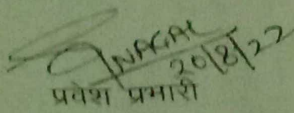 NAGAR
20/8/22
प्रवेश प्रभारी